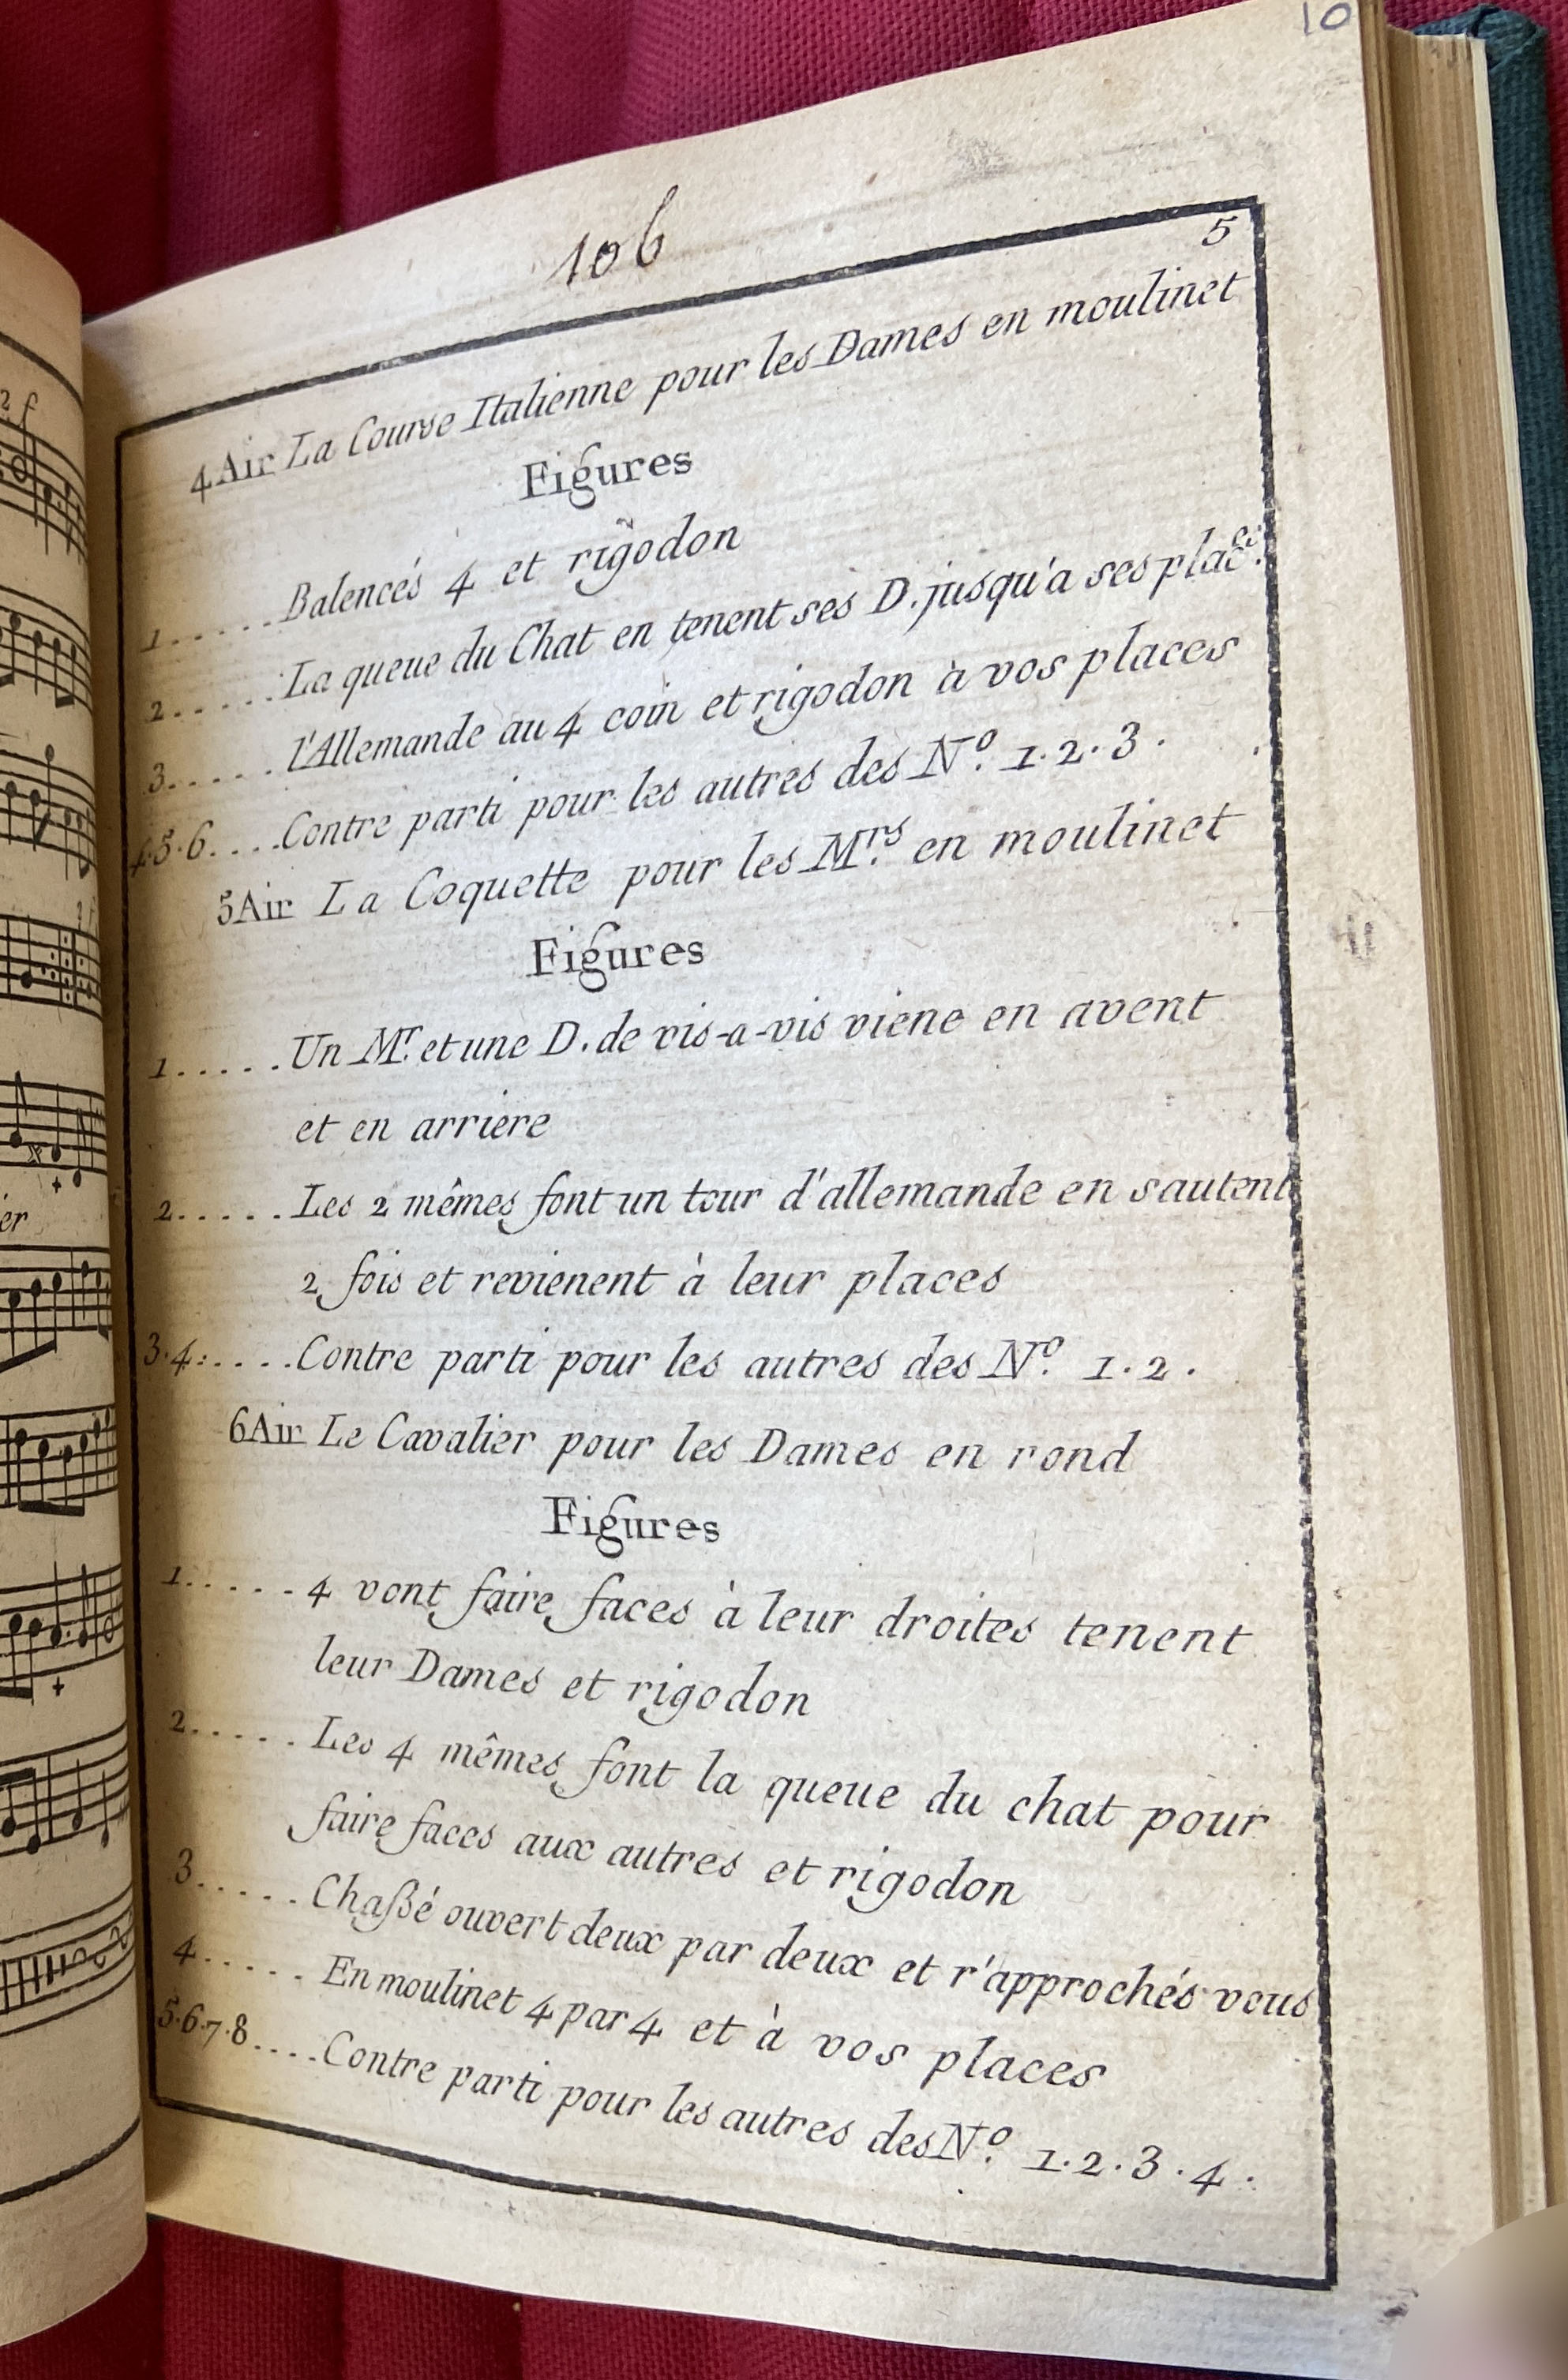 10
106
5
4 Air La Course Italienne pour les Dames en moulinet
Figures
1..... Balencés 4 et rigodon
2..... La queue du Chat en tenent ses D. jusqu'a ses places.
3..... l'Allemande au 4 coin et rigodon à vos places
4.5.6.... Contre parti pour les autres des No. 1.2.3.
5 Air La Coquette pour les Mrs. en moulinet
Figures
1..... Un Mr. et une D. de vis-a-vis viene en avent
et en arriere
2..... Les 2 mêmes font un tour d'allemande en sautent
2 fois et revienent à leur places
3.4..... Contre parti pour les autres des No. 1.2.
6 Air Le Cavalier pour les Dames en rond
Figures
1..... 4 vont faire faces à leur droites tenent
leur Dames et rigodon
2..... Les 4 mêmes font la queue du chat pour
faire faces aux autres et rigodon
3..... Chaßé ouvert deux par deux et r'approchés vous
4..... En moulinet 4 par 4 et à vos places
5.6.7.8.... Contre parti pour les autres des No. 1.2.3.4.